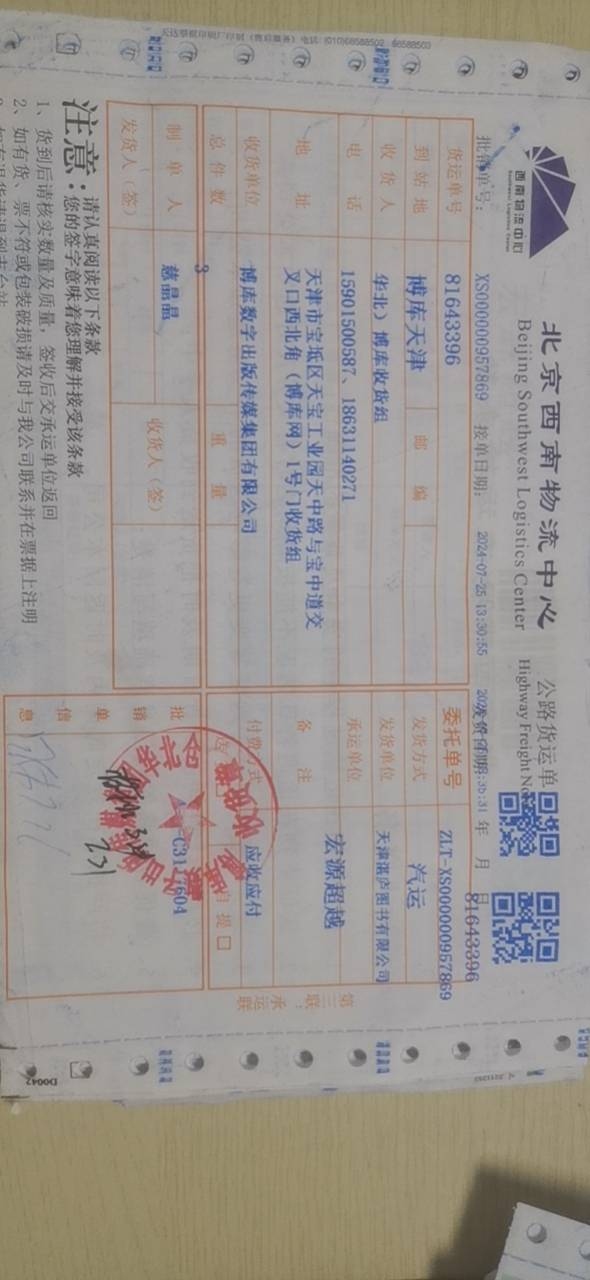 西南物流中心
Southwest Logistics Center
北京西南物流中心
Beijing Southwest Logistics Center
公路货运单
Highway Freight No
批销单号： XS000000957869 接单日期： 2024-07-25 13:30:55 发货日期： 年 月 日
81643396
货运单号 81643396 委托单号 ZLT-XS000000957869
到站地 博库天津 邮编 发货方式 汽运
收货人 华北）博库收货组 发货单位 天津湛庐图书有限公司
电话 15901500587、18631140271 承运单位
地址 天津市宝坻区天宝工业园天中路与宝中道交
叉口西北角（博库网）1号门收货组
备注 宏源超越
收货单位 博库数字出版传媒集团有限公司 付费方式 应收应付
总件数 3 重量 自提
制单人 慈晶晶 收货人（签）
发货人（签）
批销单信息
收货章
第三联：承运联
注意：
请认真阅读以下条款
您的签字意味着您理解并接受该条款
1、货到后请核实数量及质量，签收后交承运单位返回
2、如有货、票不符或包装破损请及时与我公司联系并在票据上注明
D0042